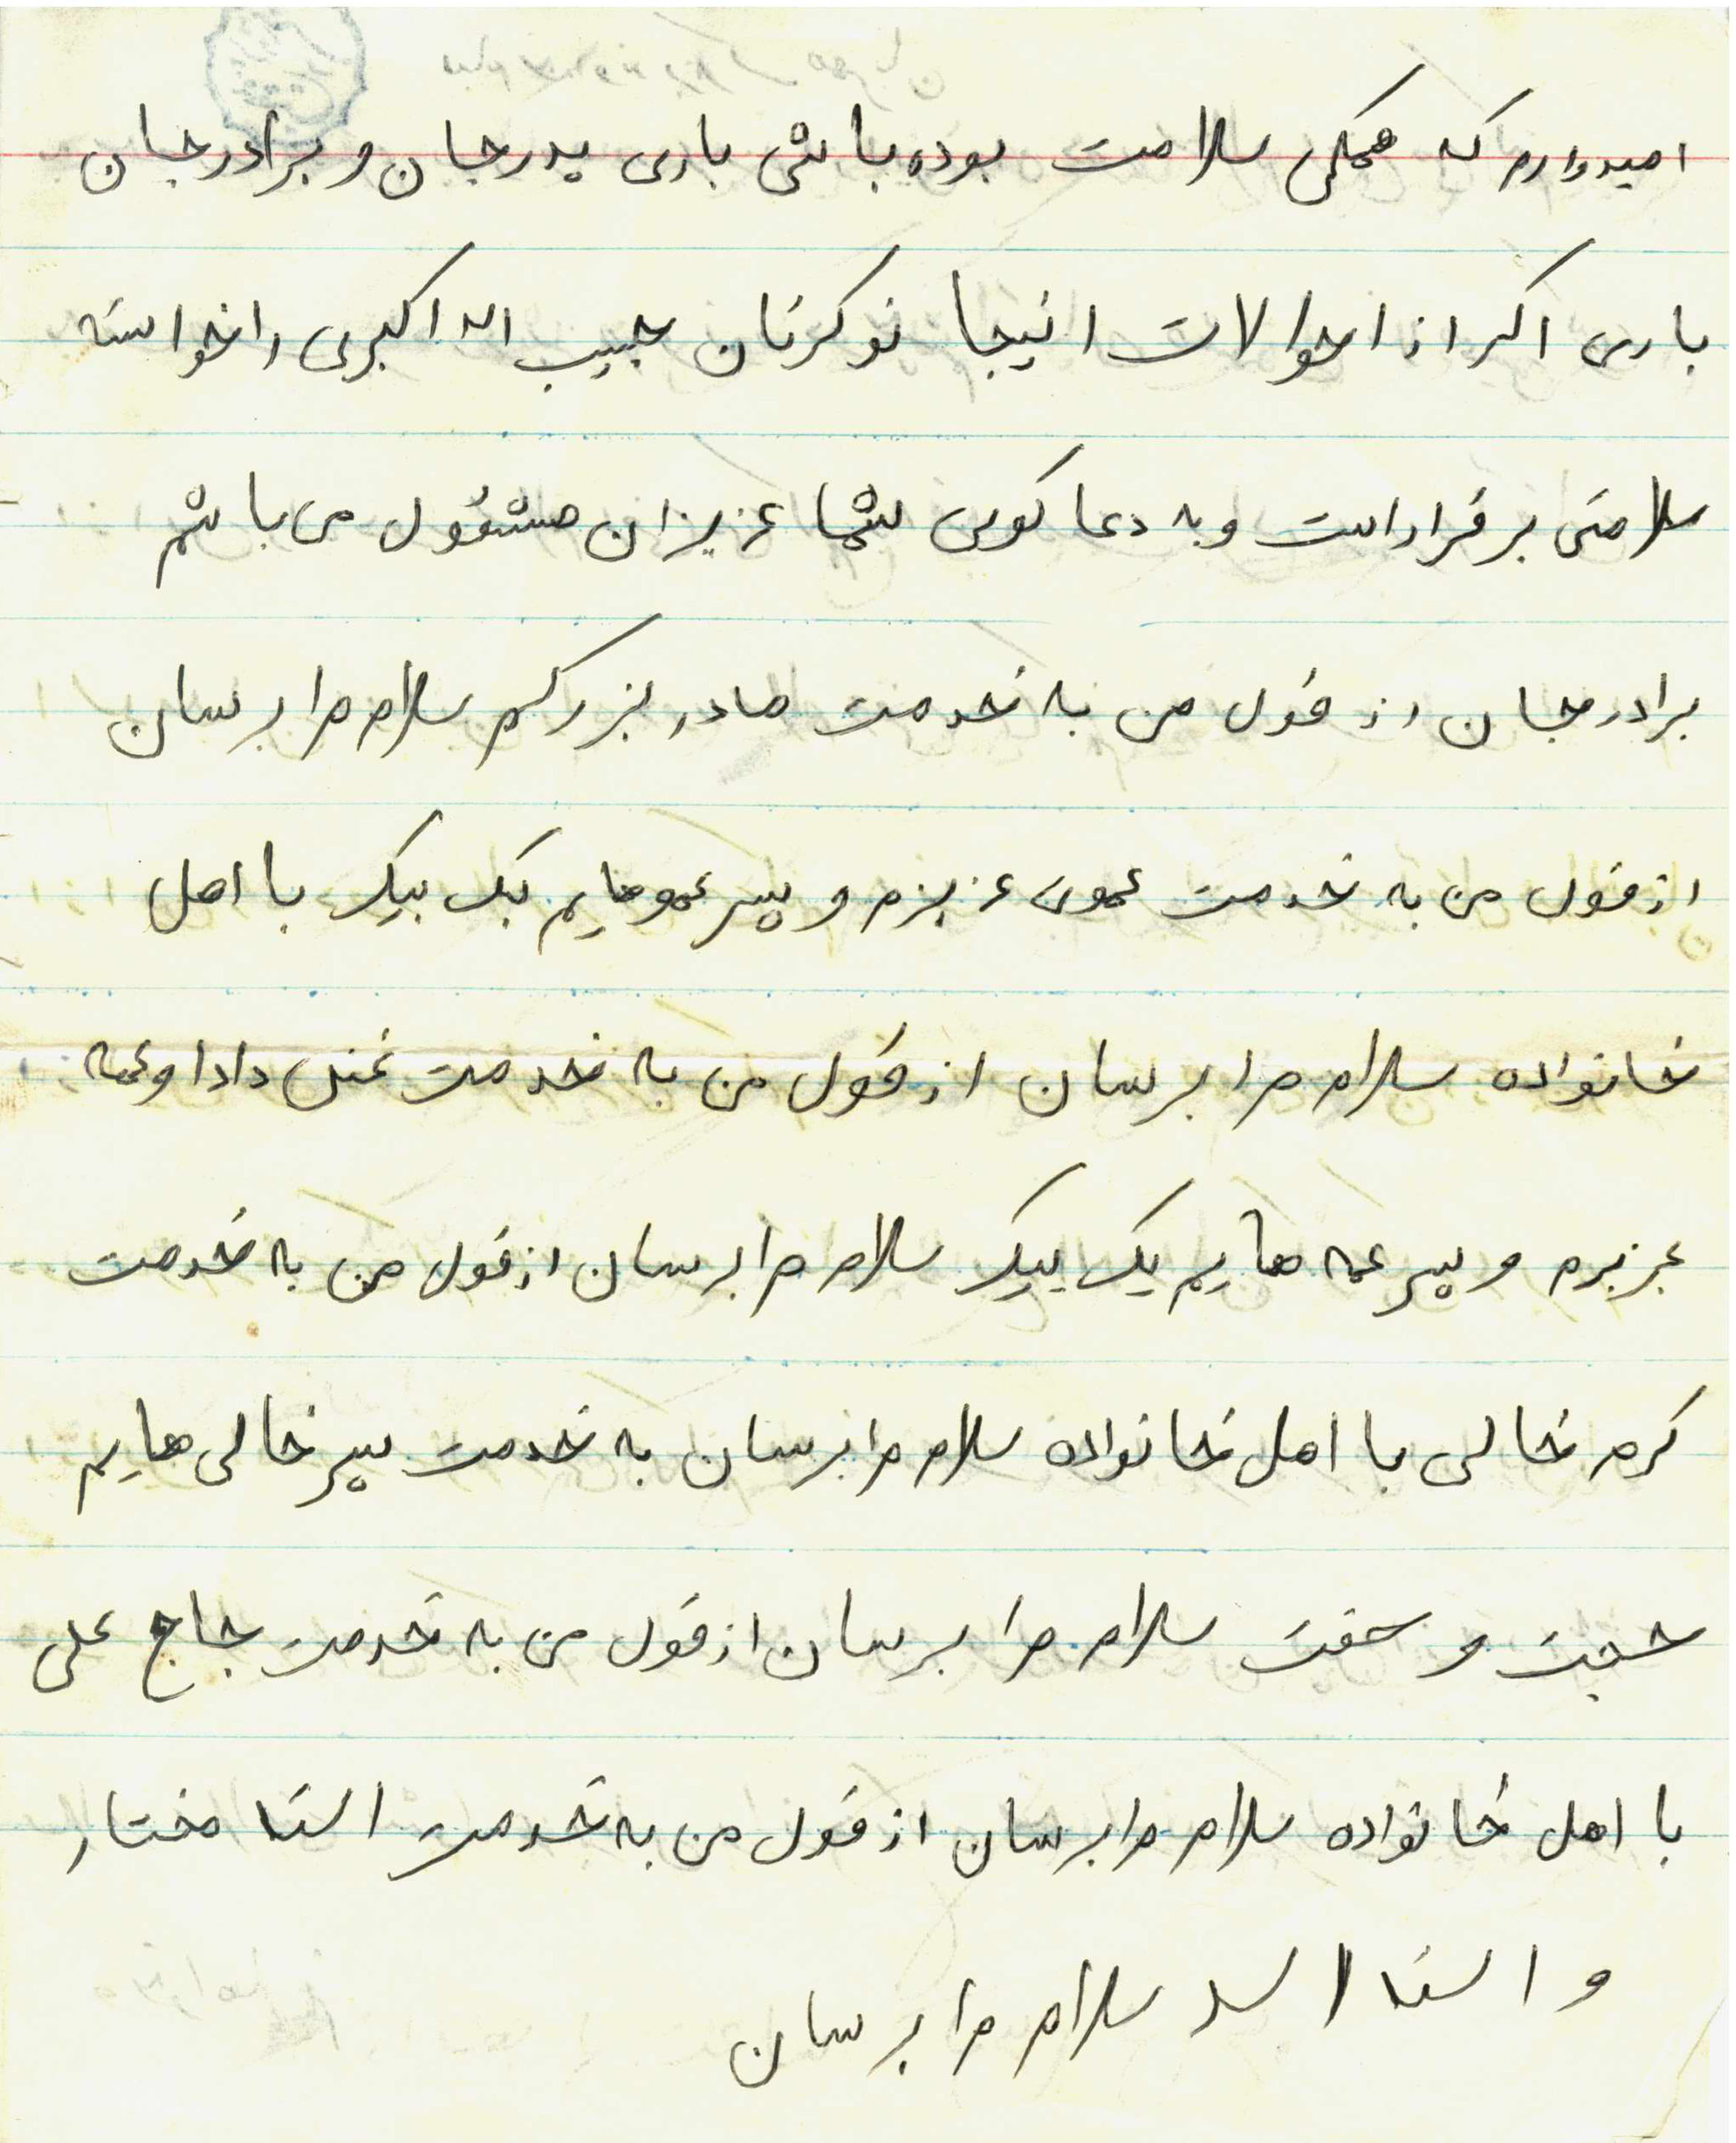 امیدوارم که همگی سلامت بوده باشی باری پدرجان و برادرجان
باری اگر از احوالات اینجا نوکرتان حبیب اله اکبری را خواسته
سلامتی برقرار است و به دعا گوی شما عزیزان مشغول می باشم
برادرجان از قول من به خدمت مادر بزرگم سلام مرا برسان
از قول من به خدمت عموی عزیزم و پسر عموهایم یک بیک با اهل
خانواده سلام مرا برسان از قول من به خدمت دادا و عمه
عزیزم و پسر عمه هایم یک بیک سلام مرا برسان از قول من به خدمت
کرم خالی با اهل خانواده سلام مرا برسان به خدمت پسر خالی هایم
حجت و سلام مرا برسان از قول من به خدمت حاج علی
با اهل خانواده سلام مرا برسان از قول من به خدمت استا مختار
و استا اسد سلام مرا برسان